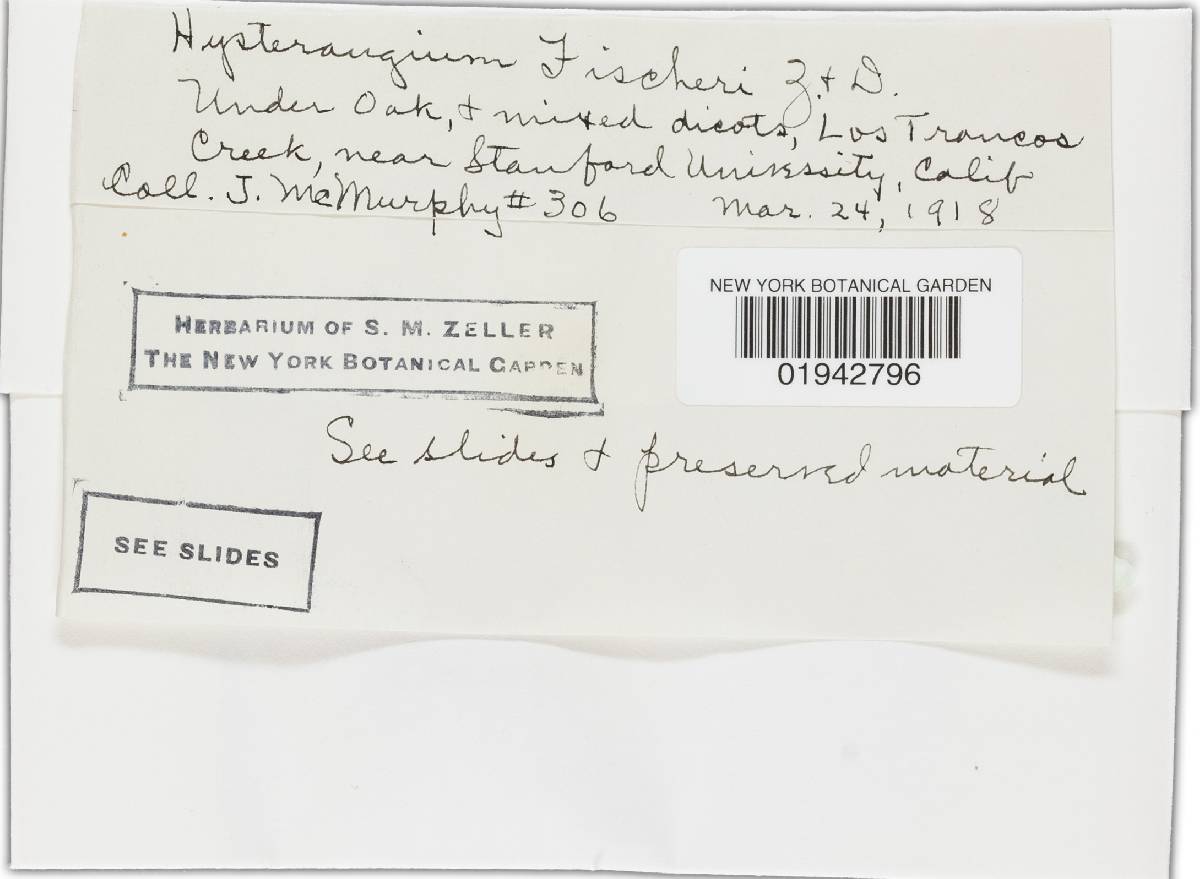 Hysterangium Fischeri Z. & D.
Under Oak, & mixed dicots, Los Trancos
Creek, near Stanford University, Calif
Coll. J. McMurphy # 306 Mar. 24, 1918
NEW YORK BOTANICAL GARDEN
01942796
HERBARIUM OF S. M. ZELLER
THE NEW YORK BOTANICAL GARDEN
See slides & preserved material
SEE SLIDES